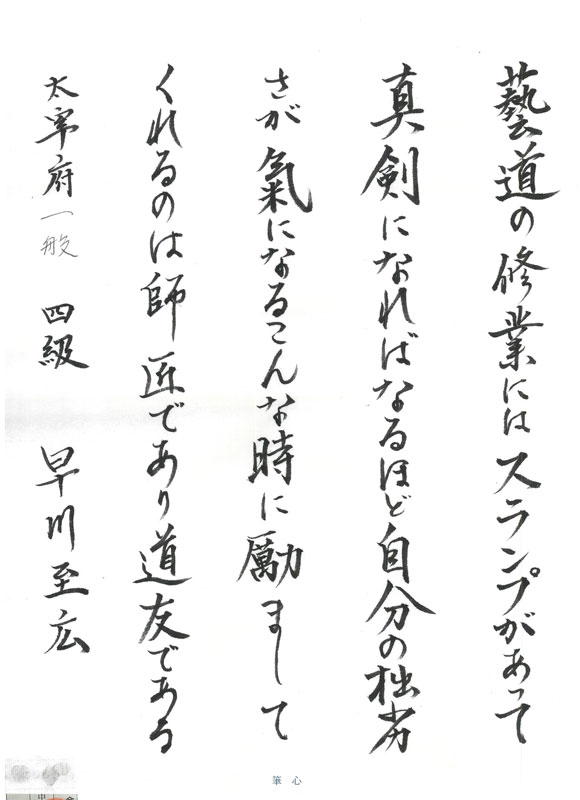 藝道の修業にはスランプがあって
真剣になればなるほど自分の拙劣
さが氣になるこんな時に励まして
くれるのは師匠であり道友である
太宰府一般 四級 早川至広
筆心